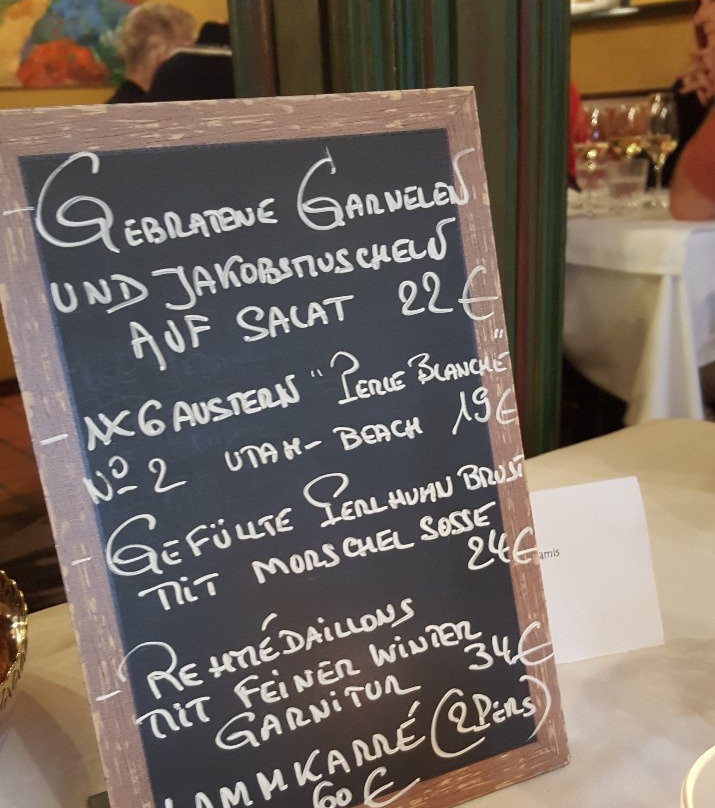 - GEBRATENE GARNELEN
UND JAKOBSMUSCHELN
AUF SALAT 22€
- 1X6 AUSTERN "PERLE BLANCHE"
No 2 UTAH-BEACH 19€
- GEFÜLTE PERLHUHN BRUST
MIT MORSCHEL SOSSE
24€
- REHMÉDAILLONS
MIT FEINER WINTER
GARNITUR 34€
LAMMKARRÉ (2 PERS)
60€
amis